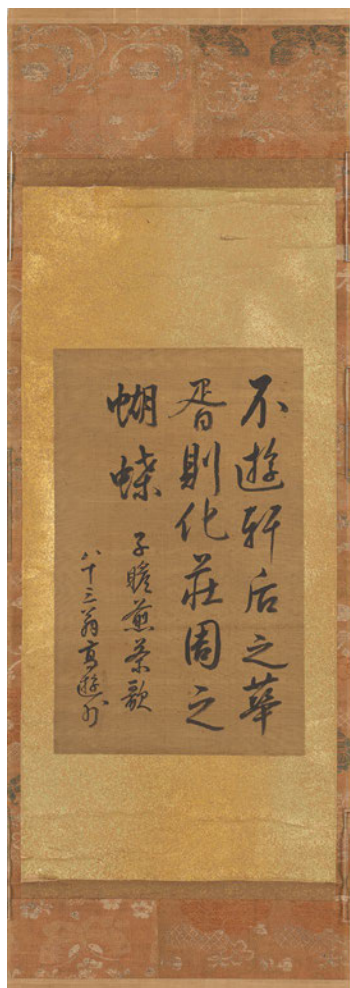 不遊軒后之華
胥則化莊周之
蝴蝶 子瞻煎茶歌
八十三翁高遊外